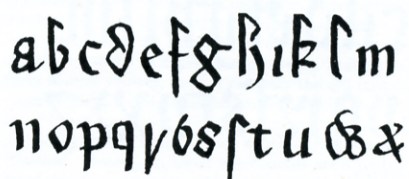 abcdefghıklm
nopqrssſtuwx